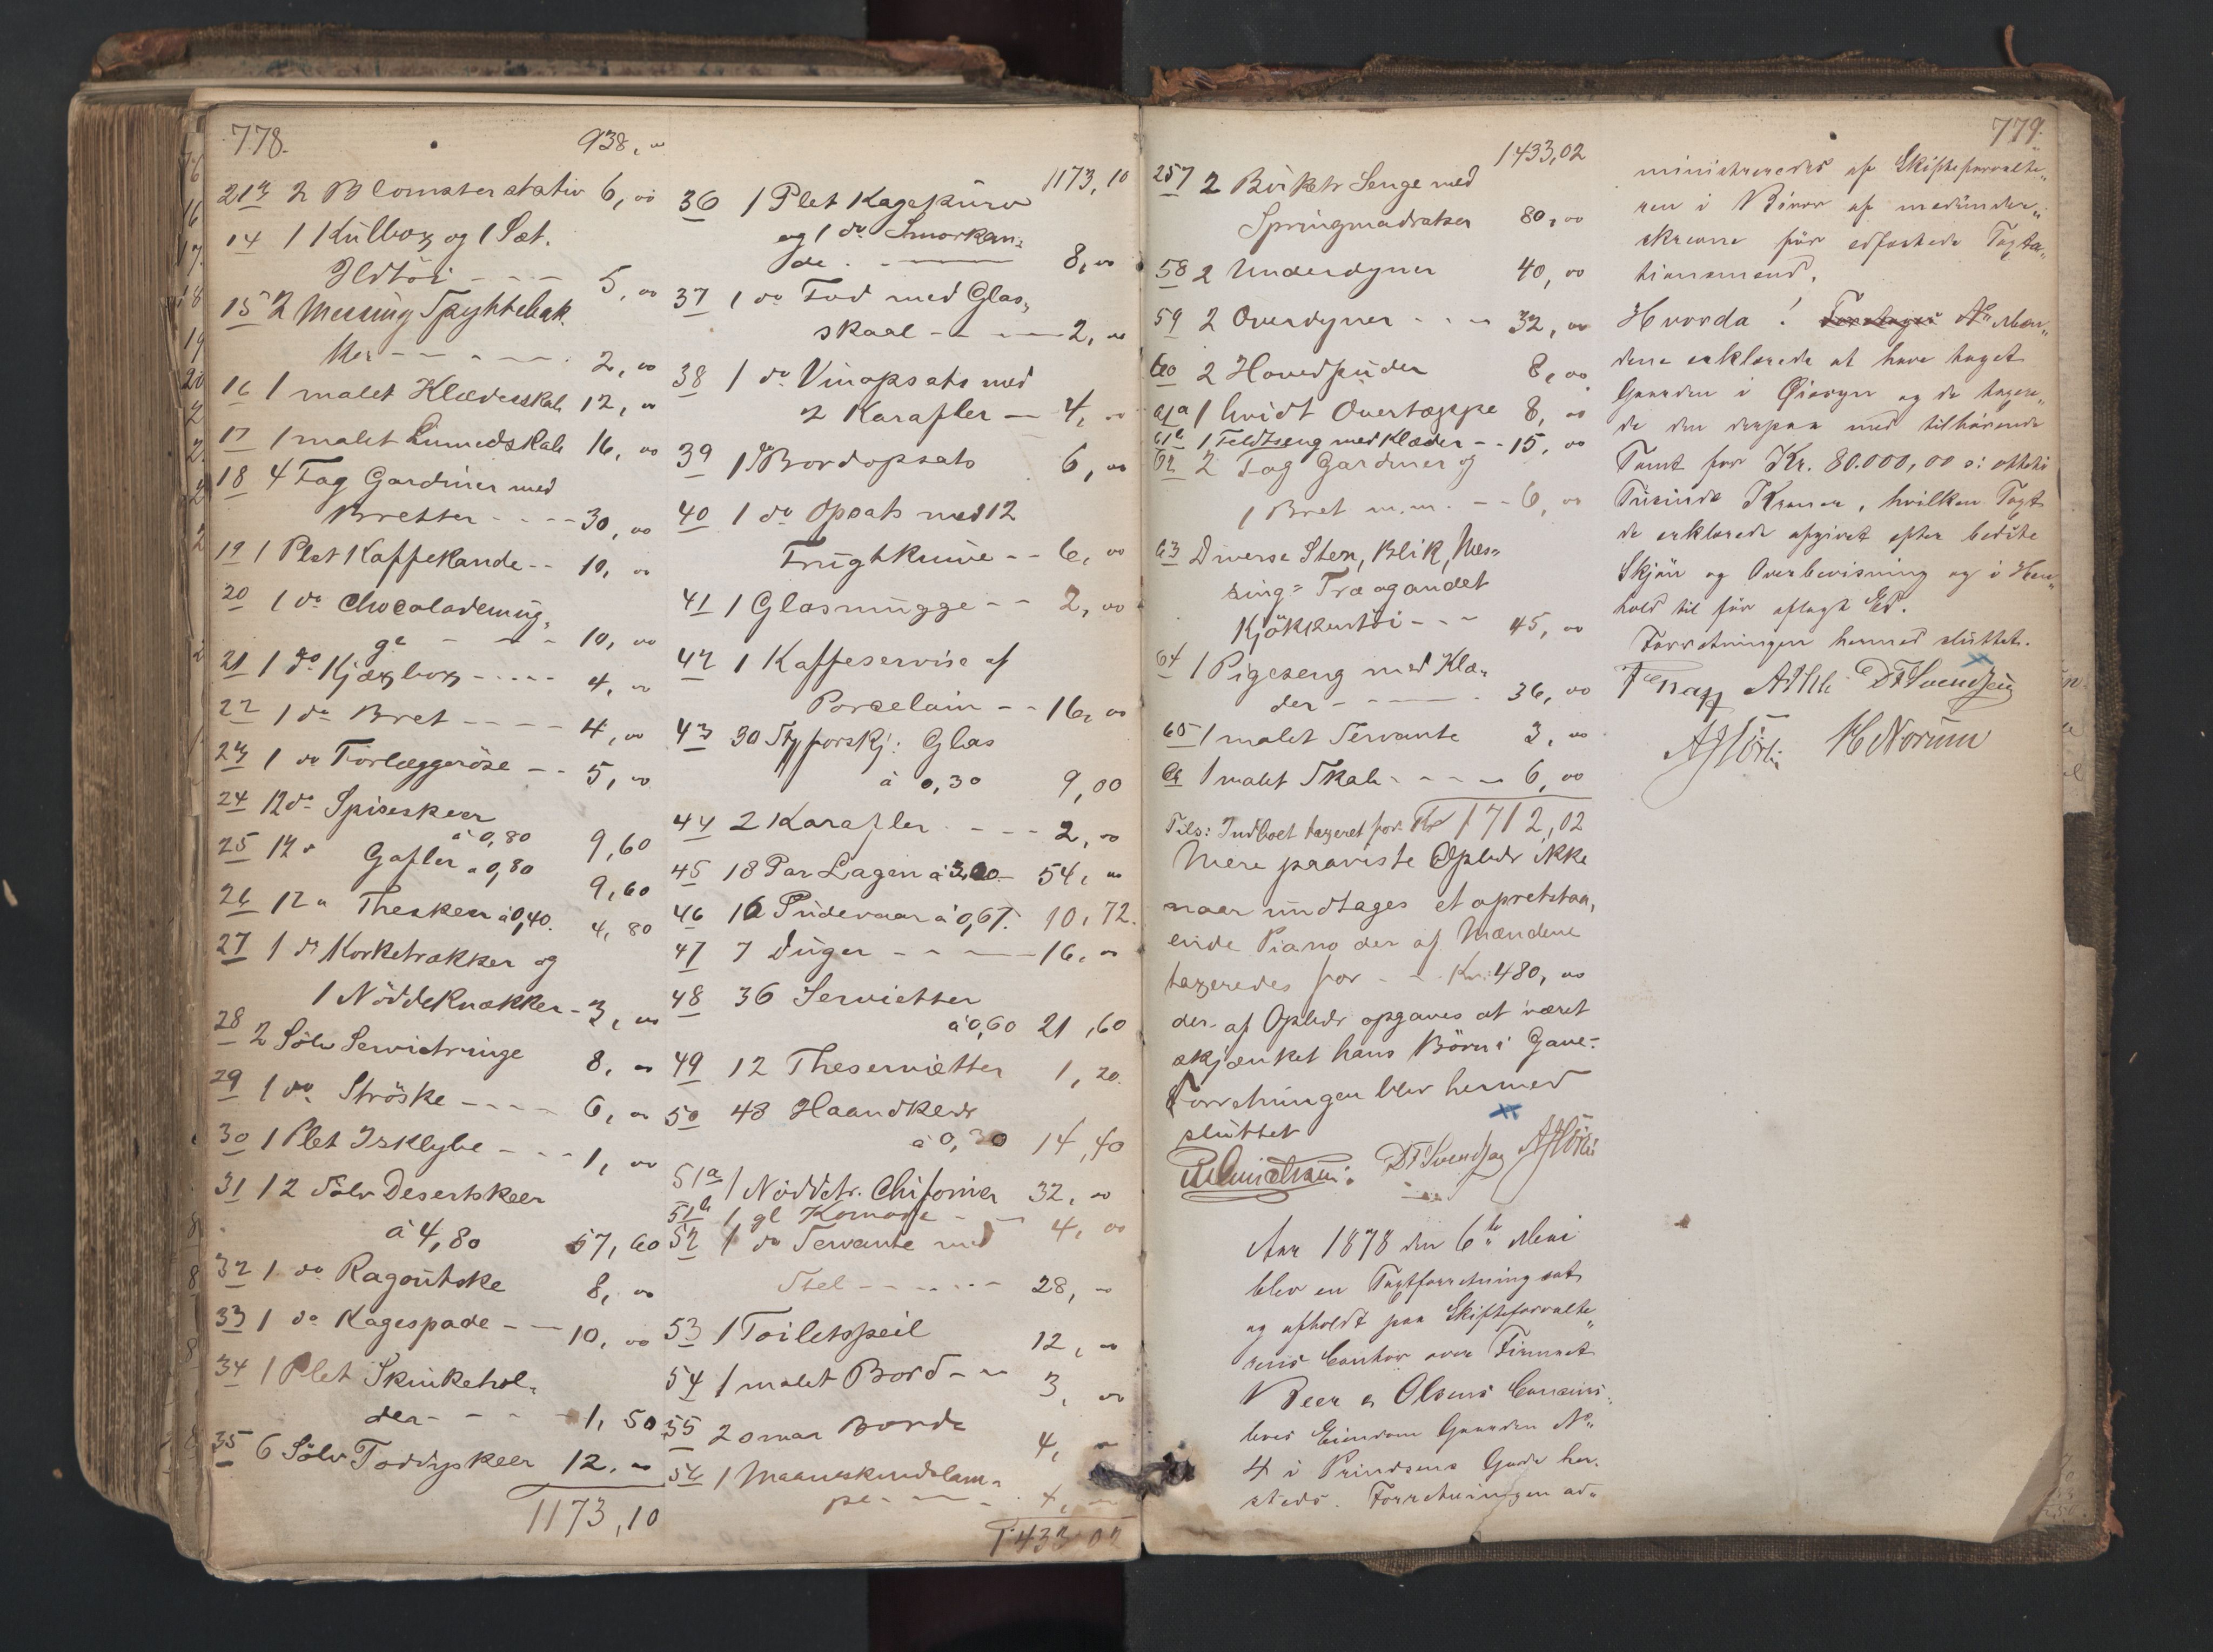 778.
938, "
213 2 Blomsterstativ 6, 00
14 1 Kulbox og 1 Sæt.
Ildtöi - - - 5, 00
15 2 Messing Spyttebak.
ker - - - - 2, 00
16 1 malet Klædesskab 12, 00
17 1 malet Linnedskab 16, 00
18 4 Fag Gardiner med
Bretter - - - - 30, 00
19 1 Plet Kaffekande - - 10, 00
20 1 do Chocolademug,
ge - - - 10, 00
21 1 do Kjæxbox - - - - - 4, 00
22 1 do Bret - - - - 4, 00
23 1 do Forlæggeröse - - 5, 00
24 12 do Spiseskeer
à 0,80 9,60
25 12 " Gafler " 0,80 9,60
26 12 " Theskeer à 0,40. 4, 80
27 1 do Korketrækker og
1 Nöddeknækker - 3, 00
28 2 Sölv Servietringe 8, 00
29 1 do Ströske - - - - 6, 00
30 1 Plet Isklybe - - - 1, 00
31 12 Sölv Desertskeer
à 4,80 57, 60
32 1 do Ragoutske 8, 00
33 1 do Kagespade - - 10, 00
34 1 Plet Skinkehol-
der - - - - 1, 50
35 6 Sölv Toddyskeer 12, 00
1173,10
1173, 10
36 1 Plet Kagekurv
og 1 do Smorkan-
de. - 8, 00
37 1 do Fad med Glas,
skaal - - - 2, 00
38 1 do Vinopsats med
2 Karafler - 4, 00
39 1 do Bordopsats 6, 00
40 1 do Opsats med 12
Frugtknive - - 6, 00
41 1 Glasmugge - - 2, 00
42 1 Kaffeservise af
Porcelain - - 16, 00
43 30 Stk forskj: Glas
à 0,30 9,00
44 2 Karafler - - - 2, 00
45 18 Par Lagen à 3,00 - 54, 00
46 16 Pudevaar à 0,67. 10, 72.
47 7 Duger - - - 16, 00
48 36 Servietter
à 0,60 21,60
49 12 Theservietter 1, 20.
50 48 Haandklær
à 0,30 14,40
51a 1 Nöddetr. Chifonier 32, 00
51b 1 gl Komode - - 4, 00
52 1 do Servante med
Stel - - - - - 28, 00
53 1 Toiletspeil 12, 00
54 1 malet Bord - - 3, 00
55 2 smaa Borde 4, 00
56 1 Maaneskinslam-
pe - - - 4, 00
1433 02
1433,02
257 2 Birketr Senge med
Springmadratser 80, 00
58 2 Underdyner 40, 00
59 2 Overdyner - - - 32, 00
60 2 Hovedpuder 8, 00
61a 1 hvidt Overtæppe 8, 00
61b 1 Feldtseng med Klæder - - 15, 00
62 2 Fag Gardiner og
1 Bret m.m. - - 6, 00
63 Diverse Sten, Blik, Mes-
sing- Træ og andet
Kjökkentöi - - - 45, 00
64 1 Pigeseng med Klæ-
der - - - 36, 00
65 1 malet Servante 3, 00
66 1 malet Skab - - - - 6, 00
Tils: Indboet taxeret for. Kr 1712,02
Mere paaviste Oplidr ikke
naar undtages et opretstaa,
ende Piano der af Mændene
taxeredes for - - Kr: 480, 00
der af Oplidr opgaves at været
skjænket hans Börn i Gave.-
Forretningen blev hermed
sluttet
DFSvendsen AHörbi
Aar 1878 den 6te Mai
blev en Taxtforretning sat
og afholdt paa Skifteforvalte„
rens Contor over Firmaet
Beer & Olsens Concurs-
boes Eiendom Gaarden No
4 i Prindsens Gade her-
steds. Forretningen ad„
779.
ministreredes af Skifteforvalte„
ren i Nærvær af medunder„
skrevne för edfæstede Taxta„
tionsmænd.
Hvorda! Foretages No Mæn„
dene erklærede at have taget
Gaarden i Öiesyn og de taxere„
de den derpaa med tilhörende
Tomt for Kr. 80.000,00 o: otteti
Tusinde Kroner, hvilken Taxt
de erklærede afgivet efter bedste
Skjön og Overbevisning og i Hen„
hold til för aflagt Ed.
Forretningen hermed sluttet.
DFSvendsen
AHörbi HNorum